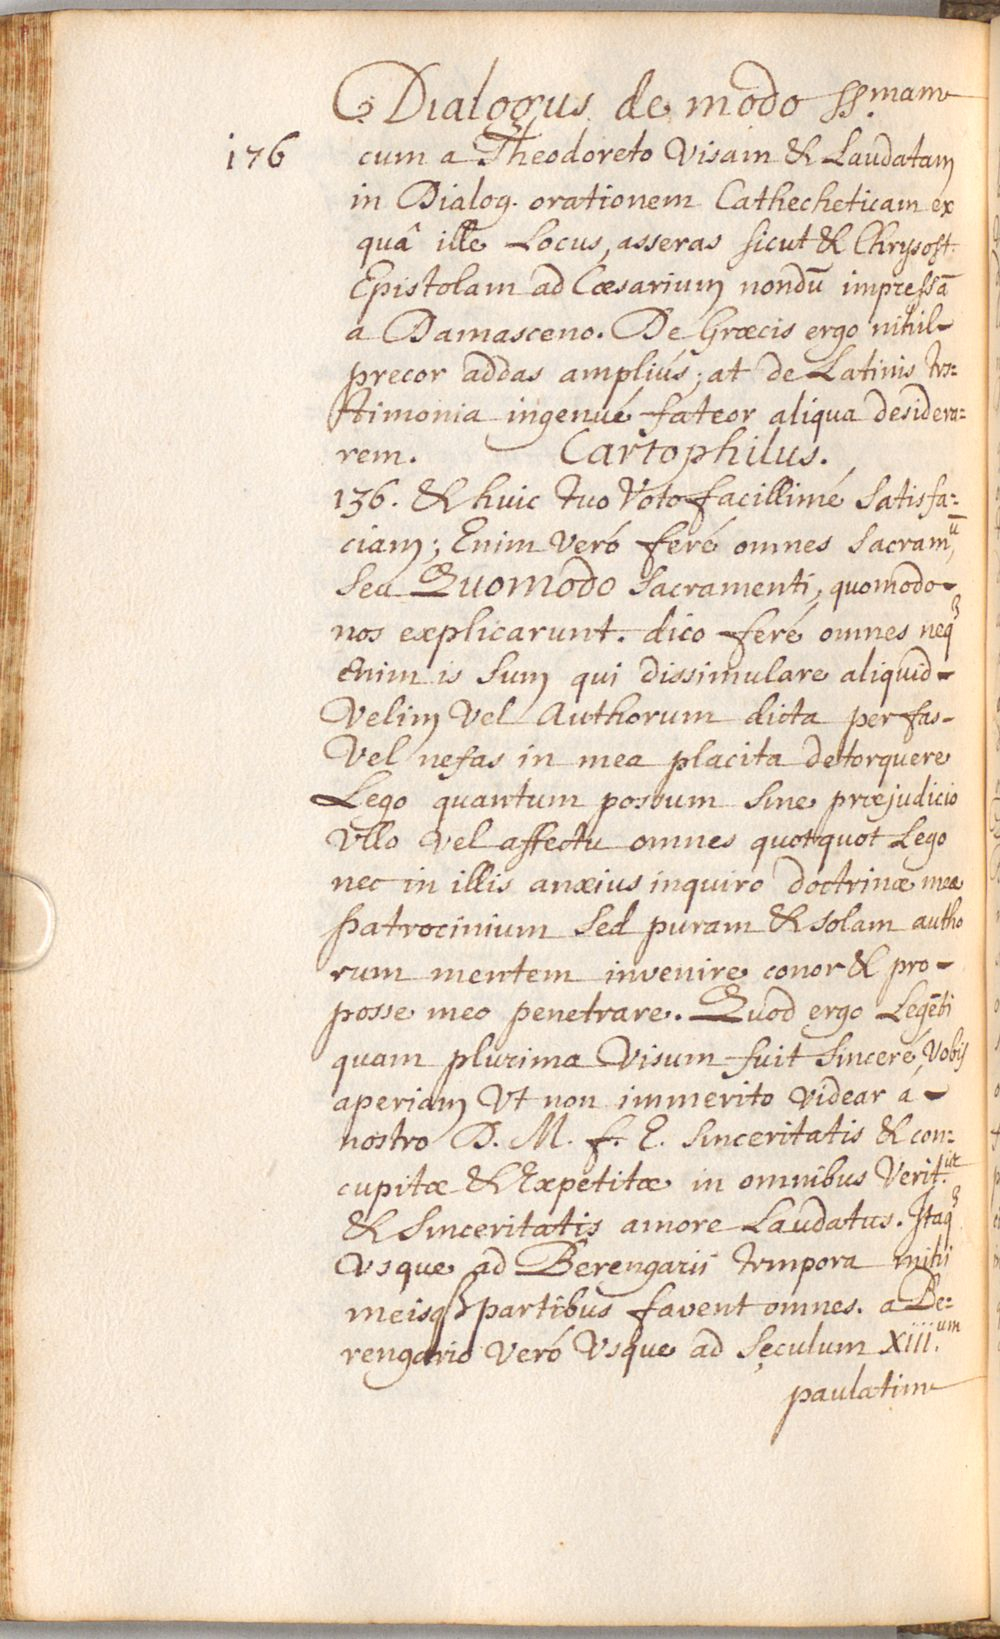 Dialogus de modo ss.mam
176 cum a Theodoreto Visam & Laudatam
in Dialog. orationem Cathecheticam ex
quâ ille Locus, asseras sicut & Chrysost.
Epistolam ad Cæsarium nondū impressā
a Damasceno. De Græcis ergo nihil-
precor addas ampliús; at de Latinis tes:
timonia ingenué fateor aliqua desidera:
rem. Cartophilus.
136. & huic tuo Voto facillimé satisfa:
ciam; Enim Veró feré omnes sacram,ū
seu Quomodo sacramenti, quomodo-
nos explicarunt. dico feré omnes neqȝ
enim is sum qui dissimulare aliquid-
Velim Vel Authorum dicta per fas-
Vel nefas in mea placita detorquere
Lego quantum possum sine præjudicio
Vllo Vel affectu omnes quotquot Lego
nec in illis anxius inquiro doctrinæ meæ
patrocinium sed puram & solam autho
rum mentem invenire conor & pro-
posse meo penetrare. Quod ergo Legēti
quam plurima Visum fuit sinceré, Vobis
aperiam Vt non immerito videar á-
nostro D. M. f. E. sinceritatis & con:
cupitæ & Expetitæ in omnibus Verit.
& sinceritatis amore Laudatus. Itaqȝ
Vsque ad Berengarii tempora mihi
meisqȝ partibus favent omnes. a Be:
rengario Veró Vsque ad seculum XIII.um
paulatim